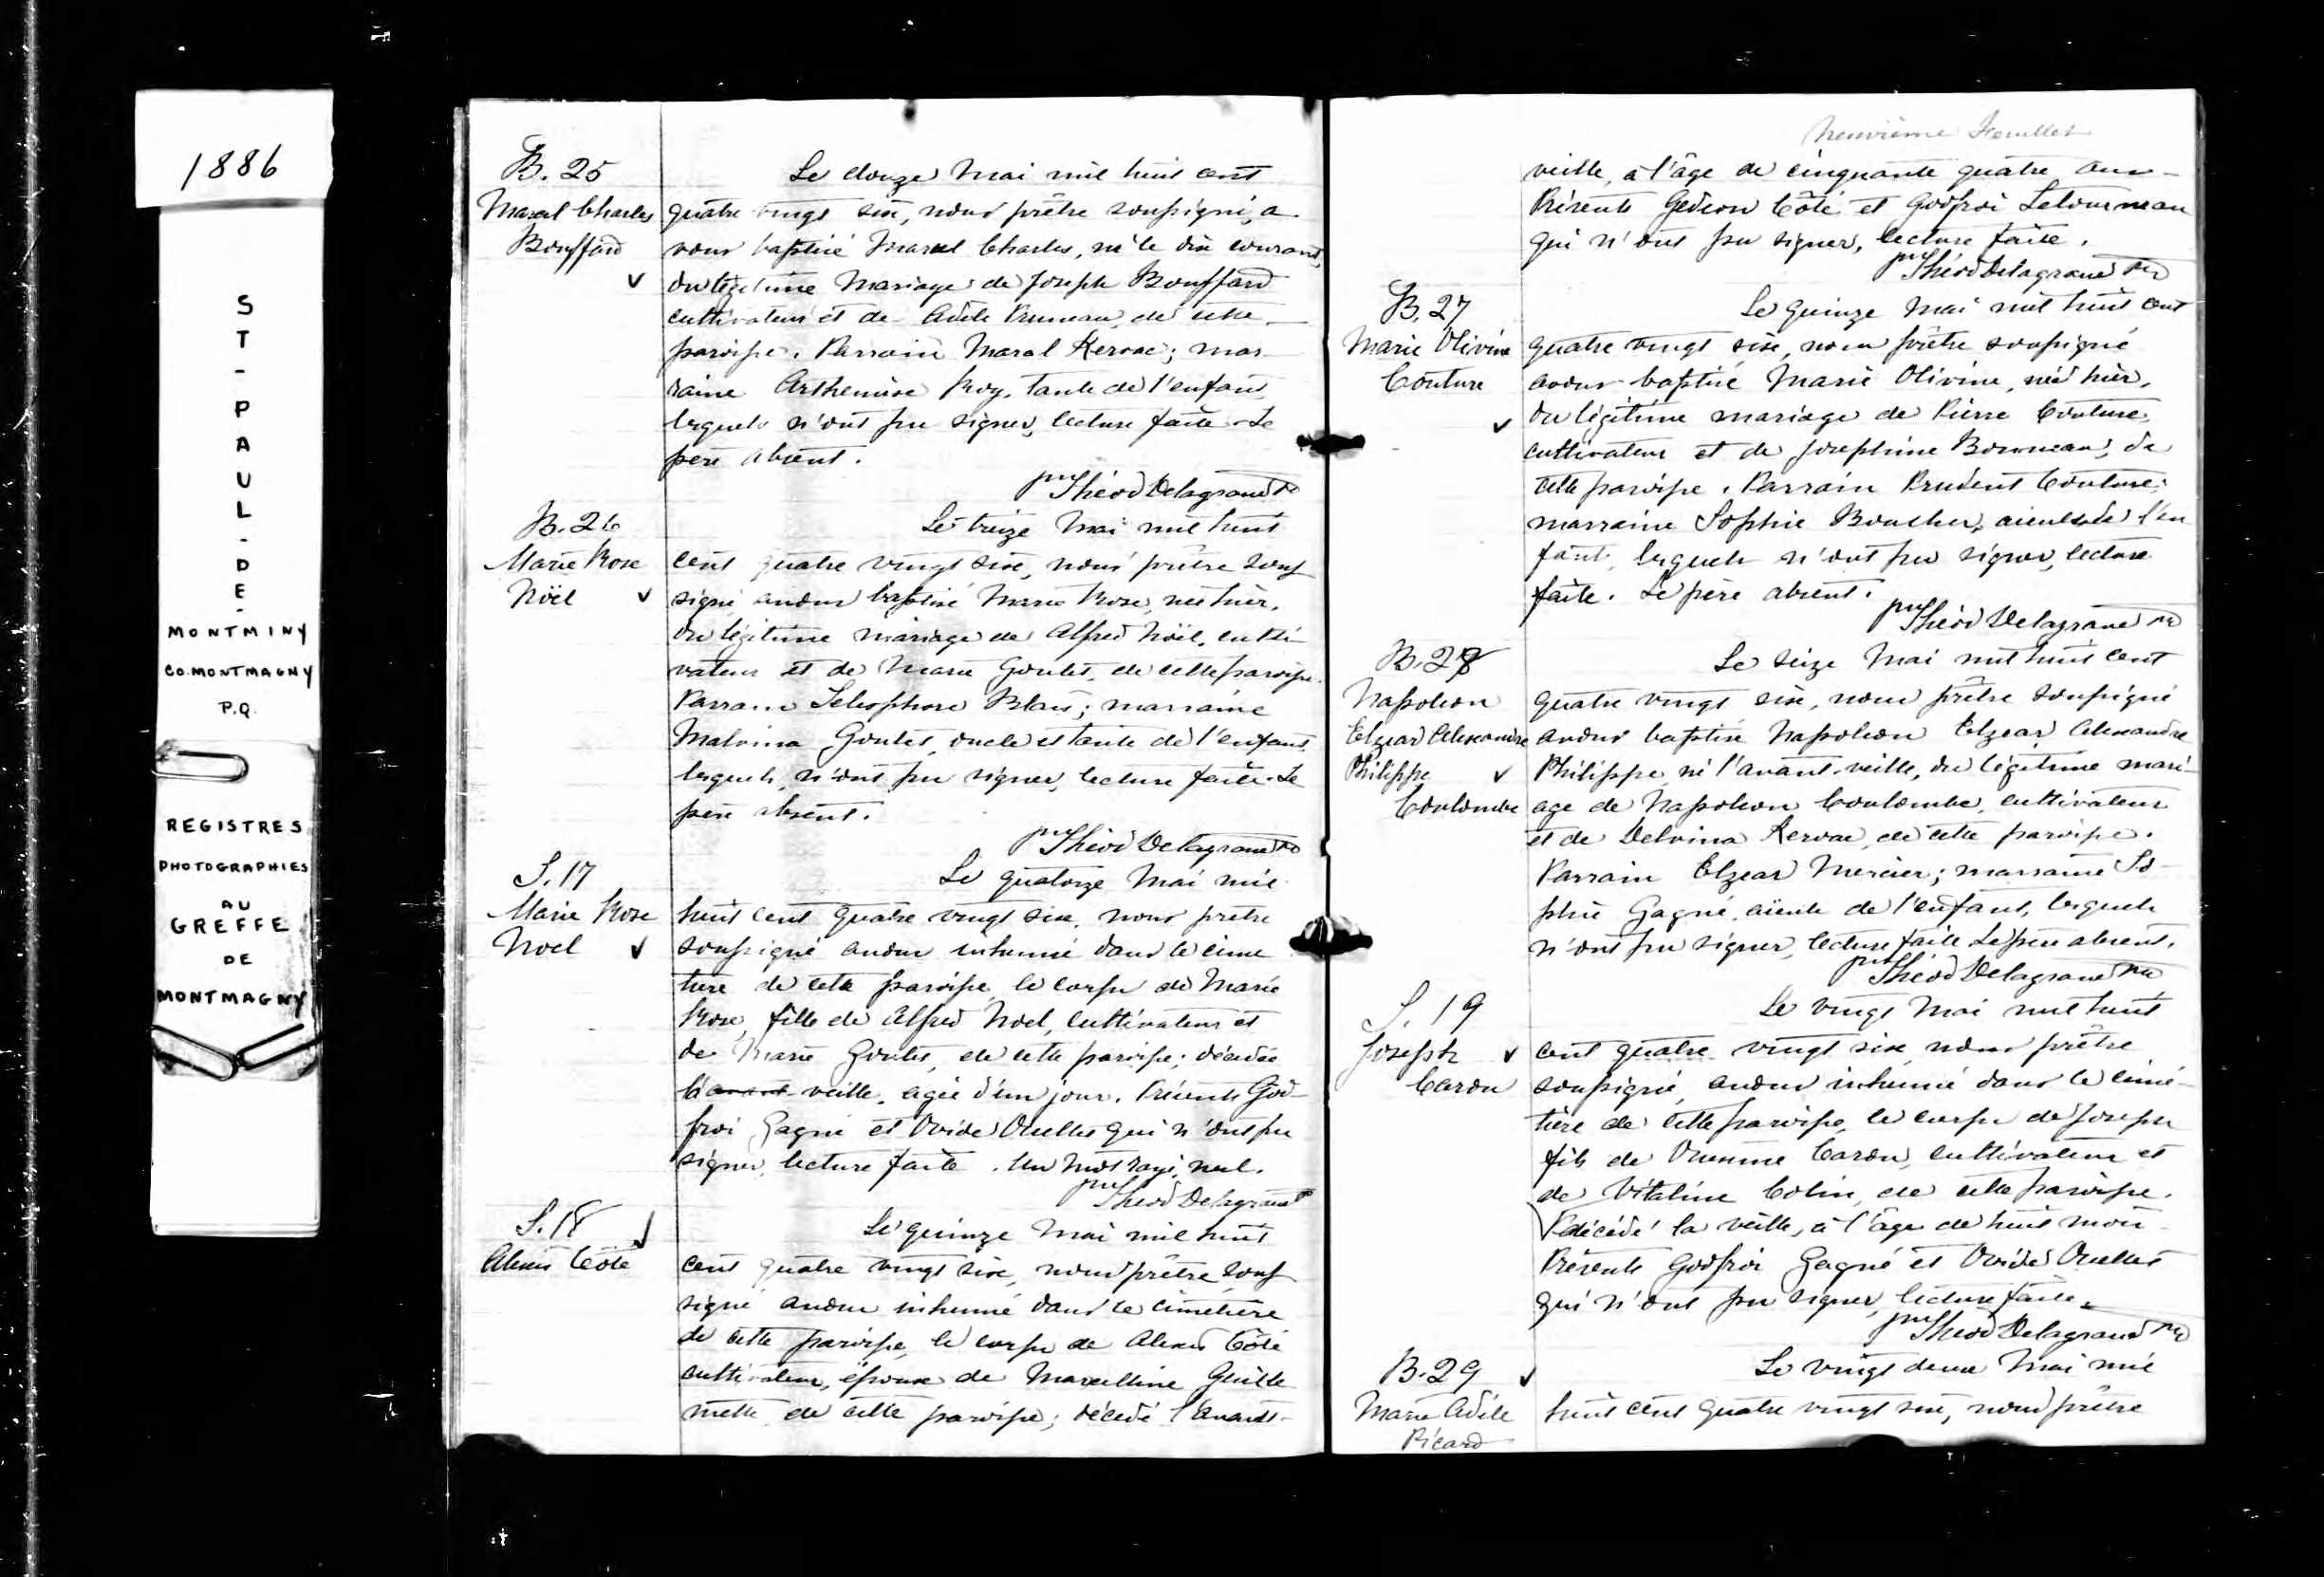 1886
ST-PAUL-DE-
MONTMINY
CO. MONTMAGNY
P.Q.
REGISTRES
PHOTOGRAPHIES
AU
GREFFE
DE
MONTMAGNY
B. 25
Marcel Charles
Bouffard
Le douze Mai mil huit cent
quatre vingt six, nous prêtre soussigné, a
vons baptisé Marcel Charles, né le dix courant,
du légitime Mariage de Joseph Bouffard
cultivateur et de Adèle Pruneau, de cette
paroisse. Parrain Maral Keroac; mar-
raine Arthemise Roy, tante de l'enfant,
lesquels n'ont pu signer, lecture faite. Le
père absent.
Théod Delagrave
B. 26
Marie Rose
Noël
Le treize Mai mil huit
cent quatre vingt six, nous prêtre sous
signé avons baptisé Marie Rose, née hier,
du légitime mariage de Alfred Noël, culti-
vateur et de Marie Goulet, de cette paroisse.
Parrain Telesphore Blais; marraine
Malvina Goulet, oncle et tante de l'enfant,
lesquels n'ont pu signer, lecture faite. Le
père absent.
Théod Delagrave
S. 17
Marie Rose
Noel
Le quatorze Mai mil
huit cent quatre vingt six, nous prêtre
soussigné avons inhumé dans le cime
tière de cette paroisse, le corps de Marie
Rose, fille de Alfred Noel, cultivateur et
de Marie Goulet, de cette paroisse; décédée
la avant-veille, agée d'un jour. Présents God-
froi Gagné et Ovide Ouellet qui n'ont pu
signer, lecture faite. Un mot rayé, nul.
Théod Delagrave
S. 18
Alexis Côté
Le quinze Mai mil huit
cent quatre vingt six, nous prêtre sous
signé avons inhumé dans le cimetière
de cette paroisse, le corps de Alexis Côté
cultivateur, époux de Marcelline Guille
mette, de cette paroisse; décédé l'avant-
neuvième Feuillet
veille, à l'âge de cinquante quatre ans -
Présents Gédéon Côté et Godfroi Letourneau
qui n'ont pu signer, lecture faite.
Théod Delagrave
B. 27
Marie Olivine
Couture
Le quinze Mai mil huit cent
quatre vingt six, nous prêtre soussigné
avons baptisé Marie Olivine, née hier,
du légitime mariage de Pierre Couture,
cultivateur et de Josephine Bonneau, de
cette paroisse. Parrain Prudent Couture;
marraine Sophie Boucher, aieuls de l'en
fant, lesquels n'ont pu signer, lecture
faite. Le père absent.
Théod Delagrave
B. 28
Napoleon
Elzear Alexandre
Philippe
Coulombe
Le seize Mai mil huit cent
quatre vingt six, nous prêtre soussigné
avons baptisé Napoleon Elzear Alexandre
Philippe né l'avant-veille, du légitime mari-
age de Napoleon Coulombe, cultivateur
et de Delvina Keroac, de cette paroisse.
Parrain Elzear Mercier; marraine So-
phie Gagné, aïeule de l'enfant, lesquels
n'ont pu signer, lecture faite. Le père absent.
Théod Delagrave
S. 19
Joseph
Caron
Le vingt Mai mil huit
cent quatre vingt six, nous prêtre
soussigné, avons inhumé dans le cime-
tière de cette paroisse, le corps de Joseph
fils de Onesime Caron, cultivateur et
de Vitaline Colin, de cette paroisse.
décédé la veille, à l'âge de huit mois
Présents Godfroi Gagné et Ovide Ouellet
qui n'ont pu signer, lecture faite.
Théod Delagrave
B. 29
Marie Adèle
Picard
Le vingt deux Mai mil
huit cent quatre vingt six, nous prêtre